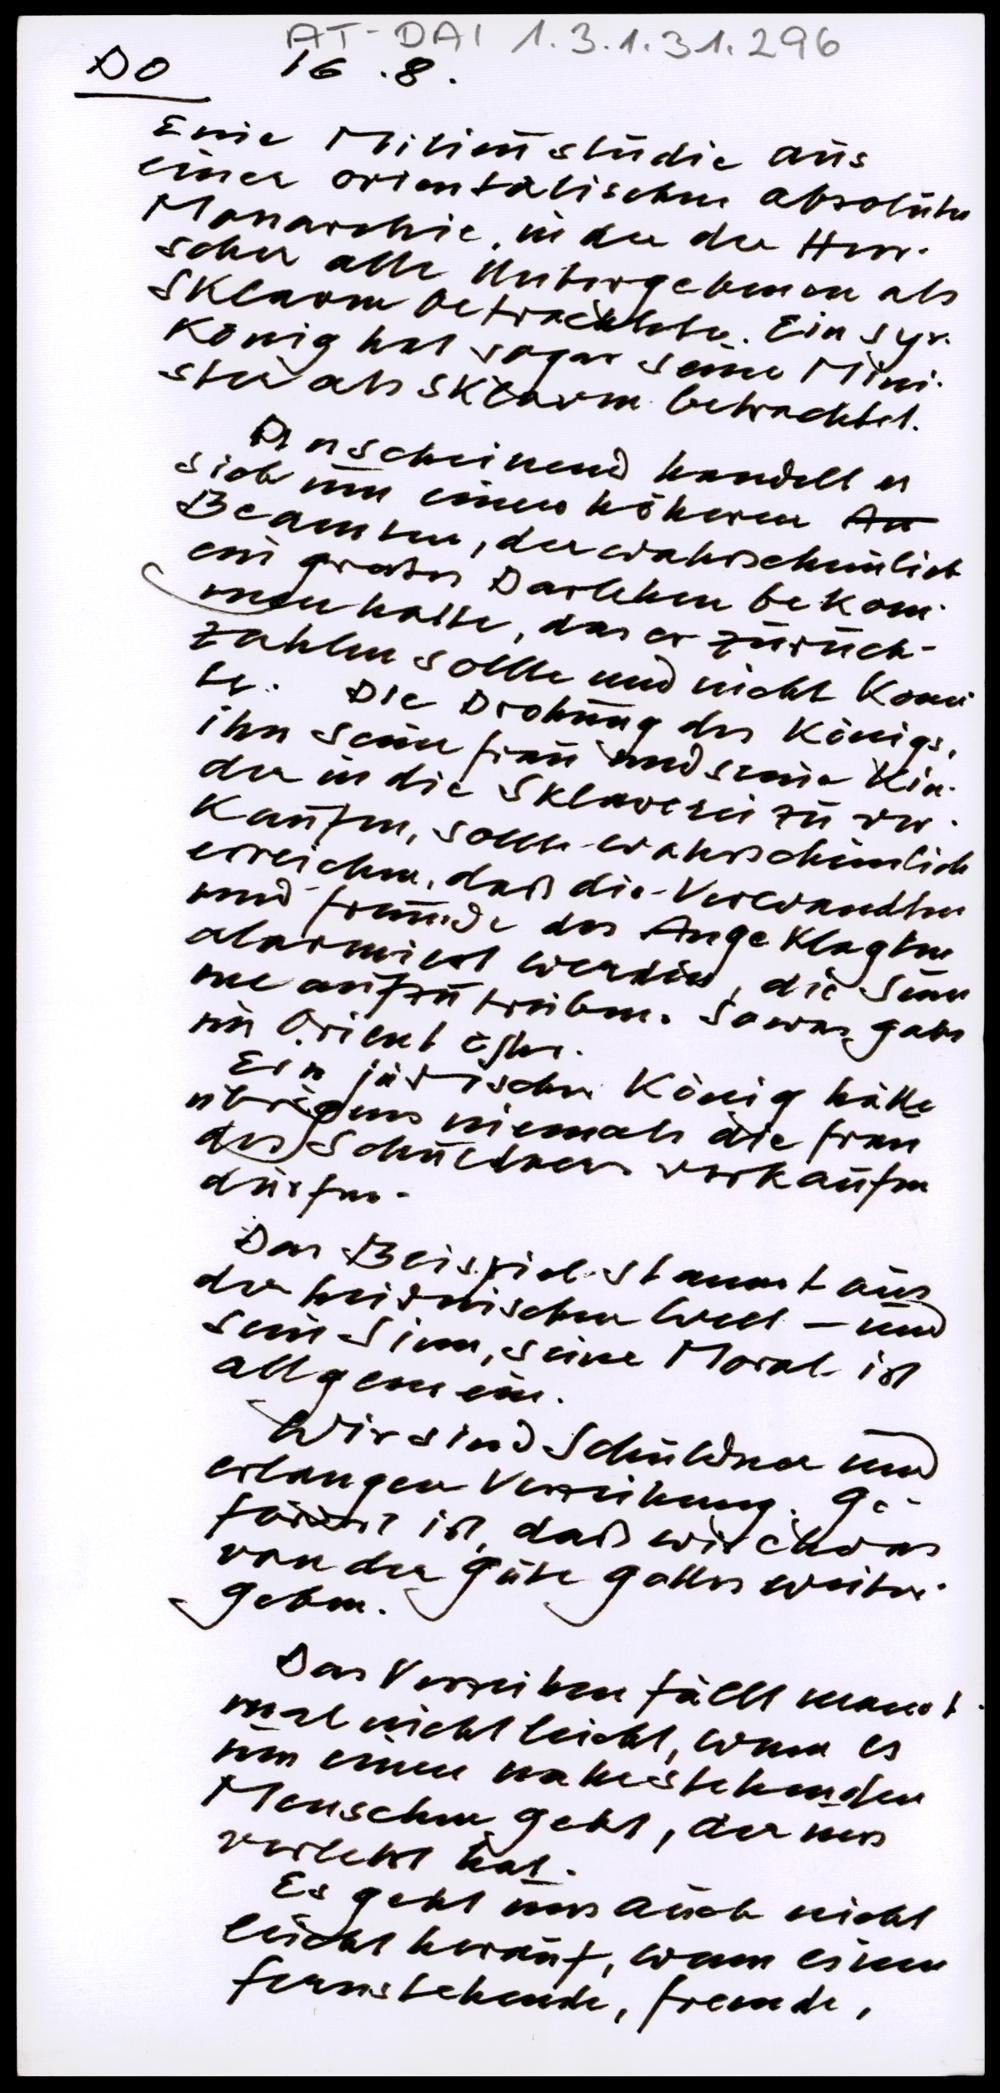 AT-DAI 1.3.1.31.296
DO 16.8.
Eine Milieustudie aus
einer orientalischen absoluten
Monarchie, in der der Herr-
scher alle Untergebenen als
Sklaven betrachtete. Ein syr.
König hat sogar seine Mini-
ster als Sklaven betrachtet.
Anscheinend handelt es
sich um einen höheren An
Beamten, der wahrscheinlich
ein großes Darlehen bekom-
men hatte, das er zurück-
zahlen sollte und nicht konn
te. Die Drohung des Königs,
ihn seine Frau und seine Kin-
der in die Sklaverei zu ver-
kaufen, sollte wahrscheinlich
erreichen, daß die Verwandten
und Freunde des Angeklagten
alarmiert werden, die Sum
me aufzutreiben. Sowas gabs
im Orient öfter.
Ein jüdischer König hätte
übrigens niemals die Frau
des Schuldners verkaufen
dürfen.
Das Beispiel stammt aus
der heidnischen Welt – und
sein Sinn, seine Moral ist
allgemein.
Wir sind Schuldner und
erlangen Verzeihung. Ge-
fordert ist, daß wir etwas
von der Güte Gottes weiter-
geben.
Das Verzeihen fällt manch
mal nicht leicht, wenn es
um einen nahestehenden
Menschen geht, der uns
verletzt hat.
Es geht uns auch nicht
leicht herauf, wenn einem
fernstehende, fremde,